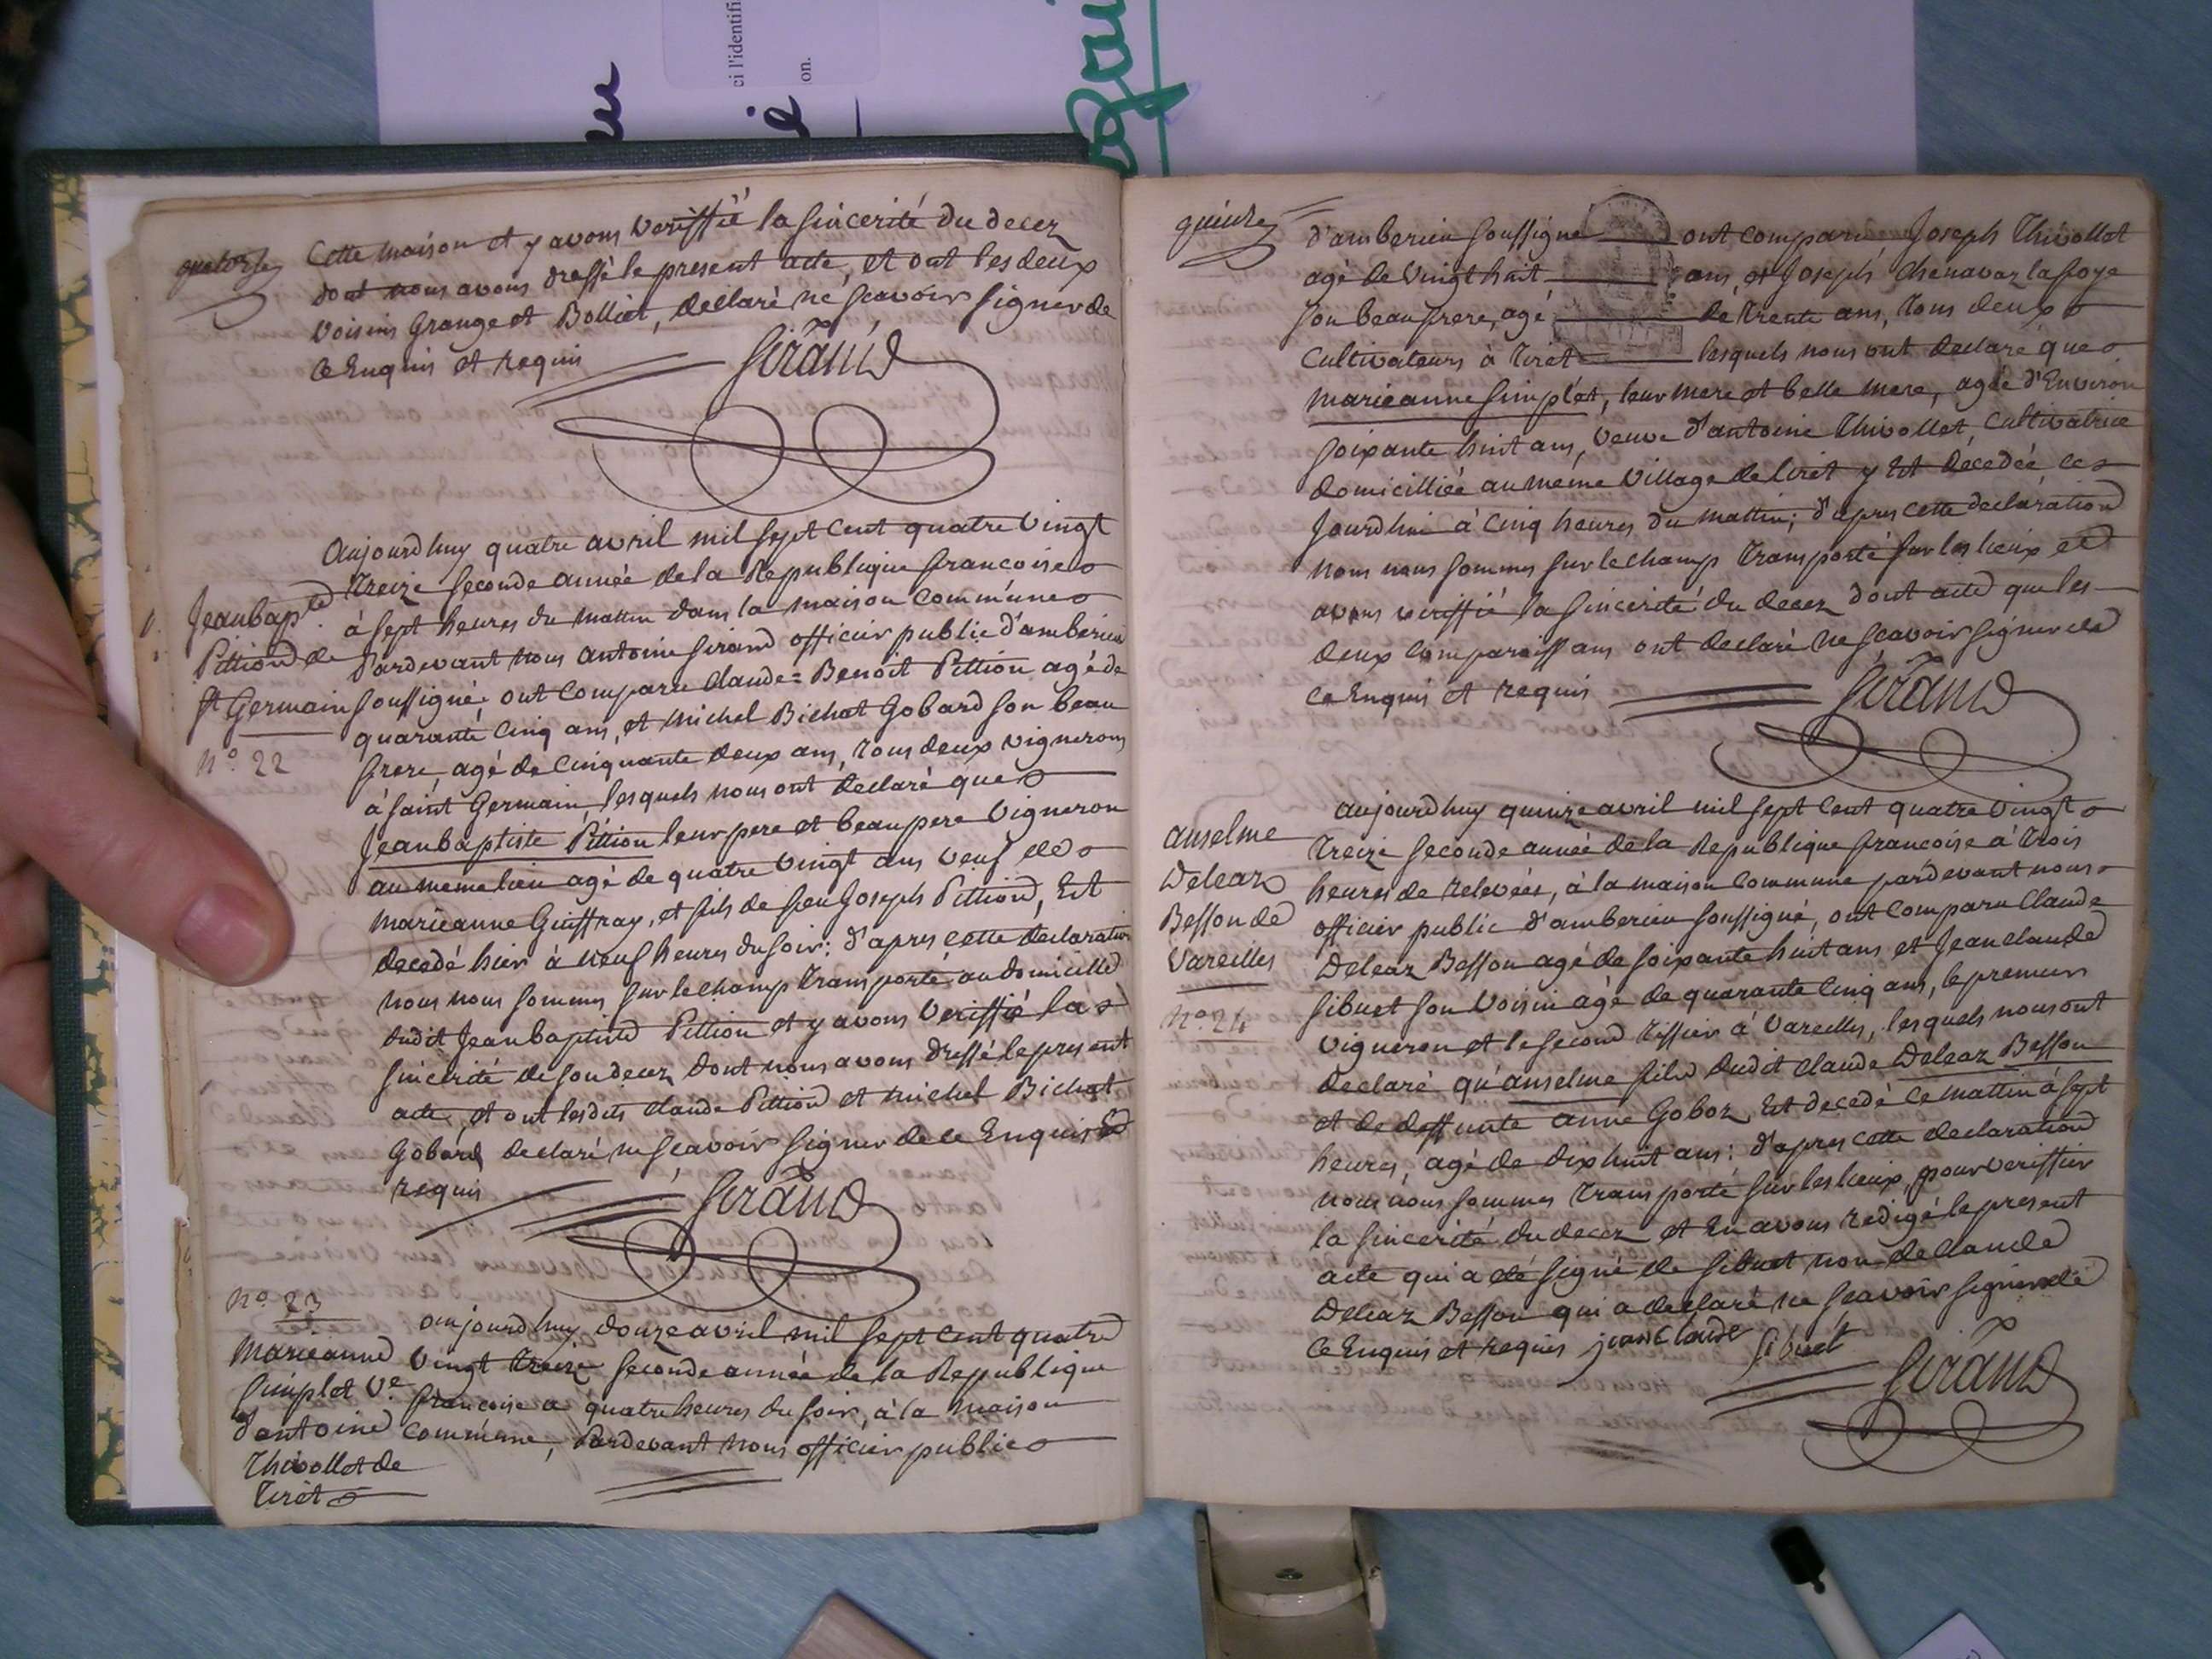 ci l'identifi
on.
quatorze
Cette maison et y avons veriffié la sincerité du decez
dont nous avons dressé le present acte, et ont les deux
voisins Grange et Bolliat, declaré ne scavoir signer de
ce Enquis et requis
Girand
Aujourdhuy quatre avril mil sept cent quatre vingt
treize seconde année de la République francoise
à sept heures du mattin dans la maison commune
Pardevant nous antoine Girand officier public d'amberieu
soussigné, ont comparu Claude=Benoit Pittion agé de
quarante cinq ans, et michel Bichat Gobard son beau
frere, agé de cinquante deux ans, tous deux vignerons
à saint Germain, lesquels nous ont declaré que
Jeanbaptiste Pittion leur pere et beaupere vigneron
au meme lieu agé de quatre vingt ans veuf de
marieanne Guiffray, et fils de feu Joseph Pittion, Est
decedé hier à neuf heures du soir: d'apres cette declaration
nous nous sommes sur le champ transporté au domicille
dudit Jeanbaptiste Pittion et y avons veriffié la
sincerité de son decez dont nous avons dressé le present
acte, et ont lesdits claude Pittion et michel Bichat
Gobard declaré ne scavoir signer de ce Enquis Et
requis
Girand
Jeanbapte.
Pittion de
St Germain
No. 22
No. 23
marieanne
Simplet Ve.
d'antoine
Thivollet de
Tiret
aujourdhuy douze avril mil sept cent quatre
vingt treize seconde année de la Republique
francoise a quatre heures du soir, à la maison
commune, Pardevant nous officier public
quinze
d'amberieu soussigné ont comparu Joseph Thivollet
agé de vingt huit ans, et Joseph Chenavaz lafoye
son beau frere, agé de trente ans, tous deux
cultivateurs à Tiret lesquels nous ont declaré que
marieanne Simplet, leur mere et belle mere, agée d'Environ
soixante huit ans, veuve d'antoine Thivollet, cultivatrice
domicilliée au meme village de tiret y Est decedée ce
jourdhui à cinq heures du mattin; d'apres cette declaration
nous nous sommes sur le champ transporté sur les lieux et
avons veriffié la sincerité du decez dont acte que les
deux comparaissans ont declaré ne scavoir signer de
ce Enquis et requis
Girand
anselme
Deleaz
Besson de
Vareilles
No. 24
aujourdhuy quinze avril mil sept cent quatre vingt
treize seconde année de la Republique francoise à trois
heures de relevée, à la maison commune pardevant nous
officier public d'amberieu soussigné, ont comparu Claude
Deleaz Besson agé de soixante huit ans et Jeanclaude
Sibuet son voisin agé de quarante cinq ans, le premier
vigneron et le second tissier à Vareilles, lesquels nous ont
declaré qu'anselme fils dudit Claude Deleaz Besson
et de deffunte anne Goboz, Est decedé ce mattin à sept
heures, agé de dix huit ans: d'apres cette declaration
nous nous sommes transporté sur les lieux, pour veriffier
la sincerité du decez et En avons redigé le present
acte qui a été signé de Sibuet non de claude
Deleaz Besson qui a declaré ne scavoir signer de
ce Enquis et requis jean Claude Sibuet
Girand